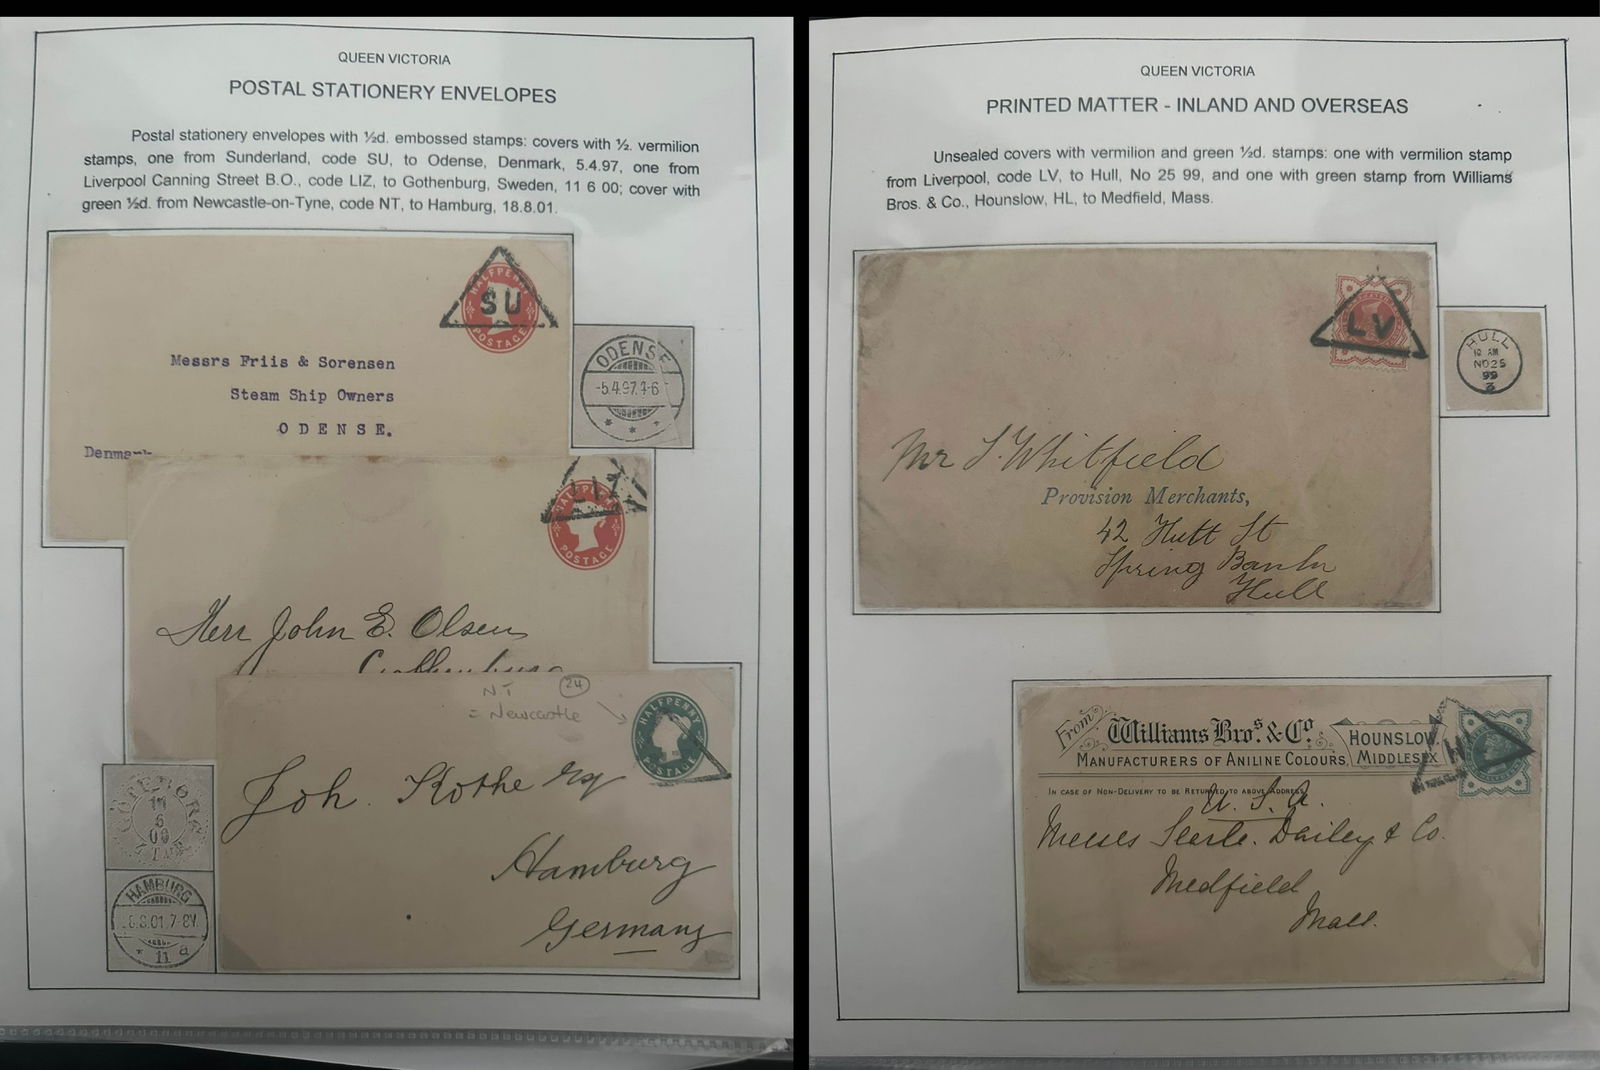 QUEEN VICTORIA
POSTAL STATIONERY ENVELOPES
Postal stationery envelopes with ½d. embossed stamps: covers with ½. vermilion
stamps, one from Sunderland, code SU, to Odense, Denmark, 5.4.97, one from
Liverpool Canning Street B.O., code LIZ, to Gothenburg, Sweden, 11 6 00; cover with
green ½d. from Newcastle-on-Tyne, code NT, to Hamburg, 18.8.01.
HALFPENNY
SU
POSTAGE
Messrs Friis & Sorensen
Steam Ship Owners
ODENSE.
Denmark
ODENSE
-5.4.97.4-6
LIZ
HALFPENNY
POSTAGE
Herr John E. Olsen
N.T 24
= Newcastle
HALFPENNY
POSTAGE
Joh. Kothe Esq
Hamburg
Germany
GÖTEBORG
11
6
00
HAMBURG
8.8.01.7-8V.
* 11 a
QUEEN VICTORIA
PRINTED MATTER - INLAND AND OVERSEAS
Unsealed covers with vermilion and green ½d. stamps: one with vermilion stamp
from Liverpool, code LV, to Hull, No 25 99, and one with green stamp from Williams
Bros. & Co., Hounslow, HL, to Medfield, Mass.
LV
HULL
10 AM
NO 25
99
3
Mr S. Whitfield
Provision Merchants,
42 Hutt St
Spring Bank
Hull
From Williams Bros. & Co.
HOUNSLOW,
MIDDLESEX
MANUFACTURERS OF ANILINE COLOURS,
IN CASE OF NON-DELIVERY TO BE RETURNED TO ABOVE ADDRESS
U.S.A.
Messes Searle. Dailey & Co.
Medfield
Mass.